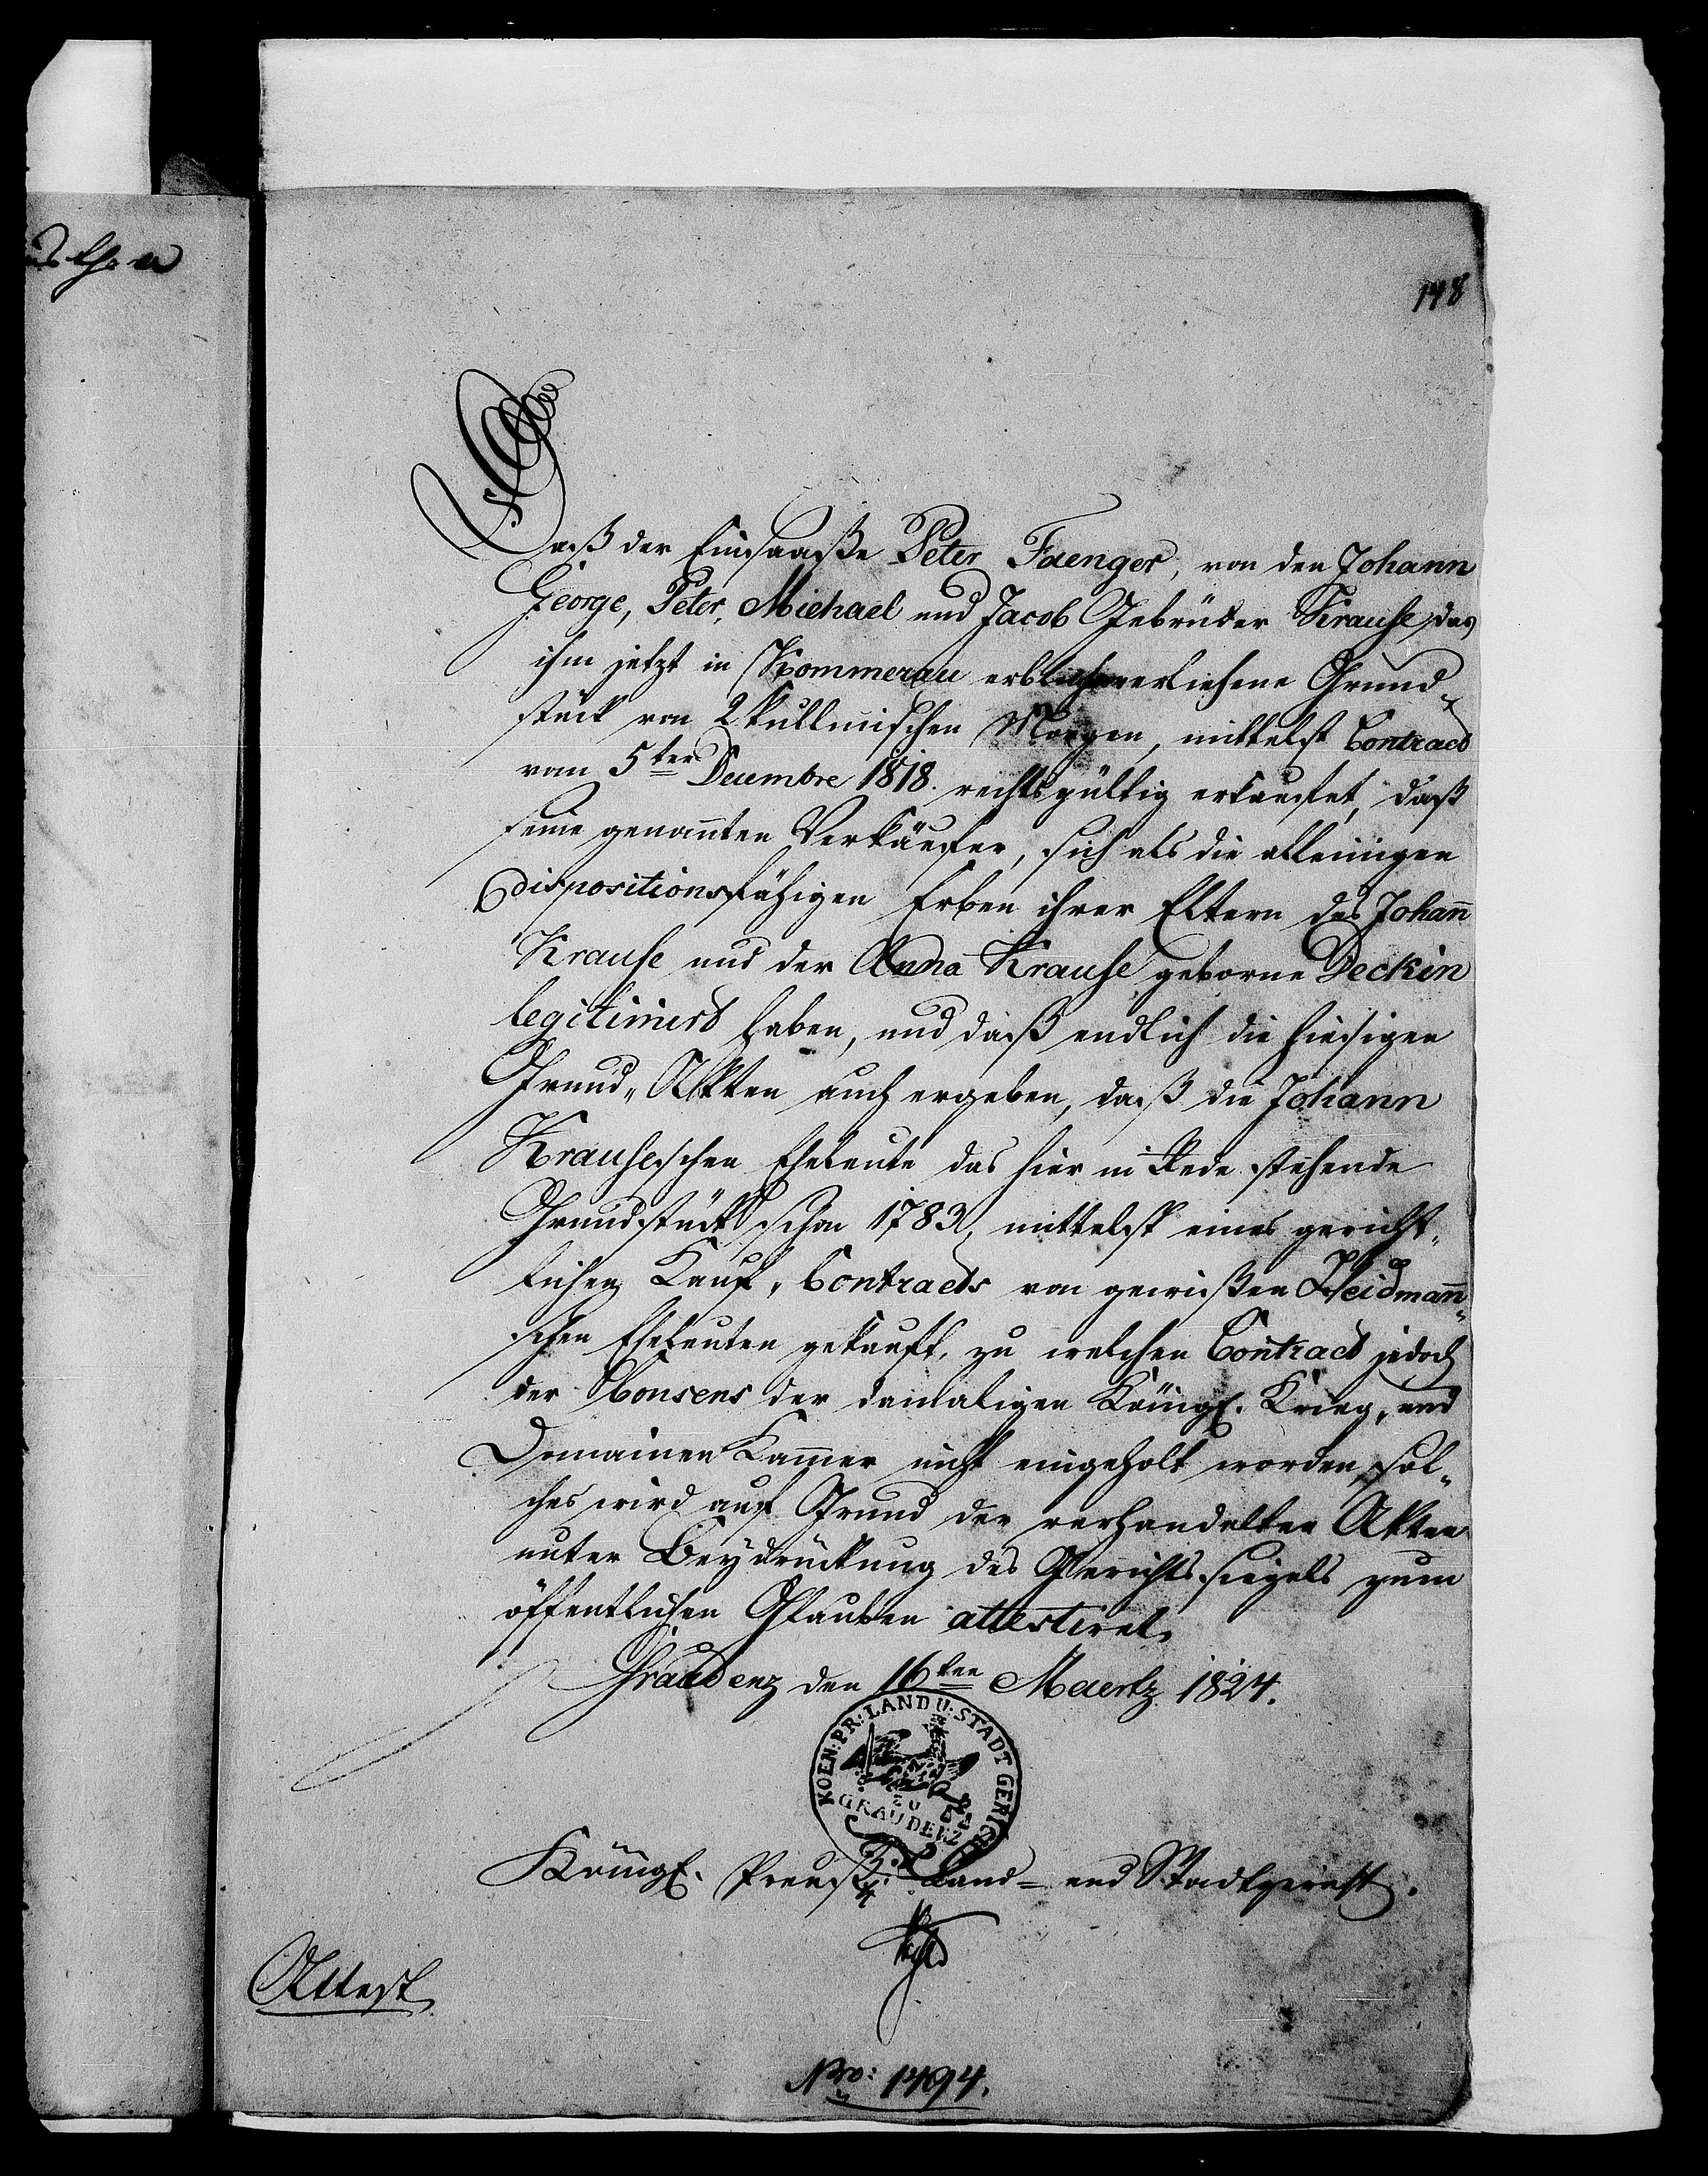 148
Daß der Einsaaße Peter Faenger, von den Johann
George, Peter, Michael und Jacob Gebrüder Krause, das
ihm jetzt in Kommerau erblich verliehene Grund-
stück von 2 kullmischen Morgen, mittelst Contract
vom 5ten Decembre 1818. rechtsgültig erkaufet, daß
seine genannten Verkäufer, sich als die alleinigen
dispositionsfähigen Erben ihrer Eltern des Johann
Krause und der Anna Krause geborne Deckin
legitimirt haben, und daß endlich die hiesigen
Grund-Akten auch ergeben, daß die Johann
Krauseschen Eheleute das hier in Rede stehende
Grundstück schon 1783, mittelst eines gericht-
lichen Kauf-Contracts von gewißen Heidmann-
schen Eheleuten gekauft, zu welchen Contract jedoch
der Consens der damaligen Königl. Krieg- und
Domainen Kammer nicht eingeholt worden, sol-
ches wird auf Grund der verhandelten Akten
unter Beydrückung des Gerichtssiegels zum
öffentlichen Glauben attestiret.
Graudenz den 16ten Maertz 1824.
KOEN: PR: LAND U: STADT GERICHT
ZU
GRAUDENZ
Königl. Preuß. Land- und Stadtgericht.
Attest
Nro: 1494.